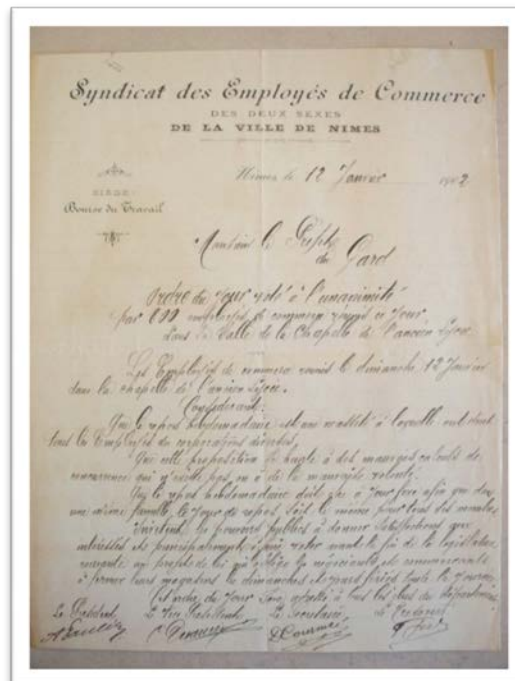 Syndicat des Employés de Commerce
DES DEUX SEXES
DE LA VILLE DE NIMES
Nimes le 12 Janvier 1902
SIEGE
Bourse du Travail
Monsieur le Préfet
du Gard
Ordre du Jour voté à l'unanimité
par 600 employés de commerce réunis ce jour,
dans la Salle de la Chapelle de l'ancien Lycée
Les Employés de commerce réunis le dimanche 12 Janvier
dans la chapelle de l'ancien Lycée.
Considérant:
Que le repos hebdomadaire est une nécessité à laquelle ont droit
tous les Employés de corporations diverses,
Que cette proposition se à des mauvais calculs de
concurrence qui n'existe pas, ou à de la mauvaise volonté.
Que le repos hebdomadaire doit être à jour fixe afin que dans
une même famille, le jour de repos soit le même pour tous ses membres
Invitent les pouvoirs publics à donner satisfaction aux
intéressés et principalement à voter avant la fin de la législature,
les négociants et commerçants
à fermer leurs magasins les dimanches et jours fériés toute la journée
Cet ordre du Jour sera à tous les du département
Le Président Le Vice Président Le Secrétaire Le Trésorier